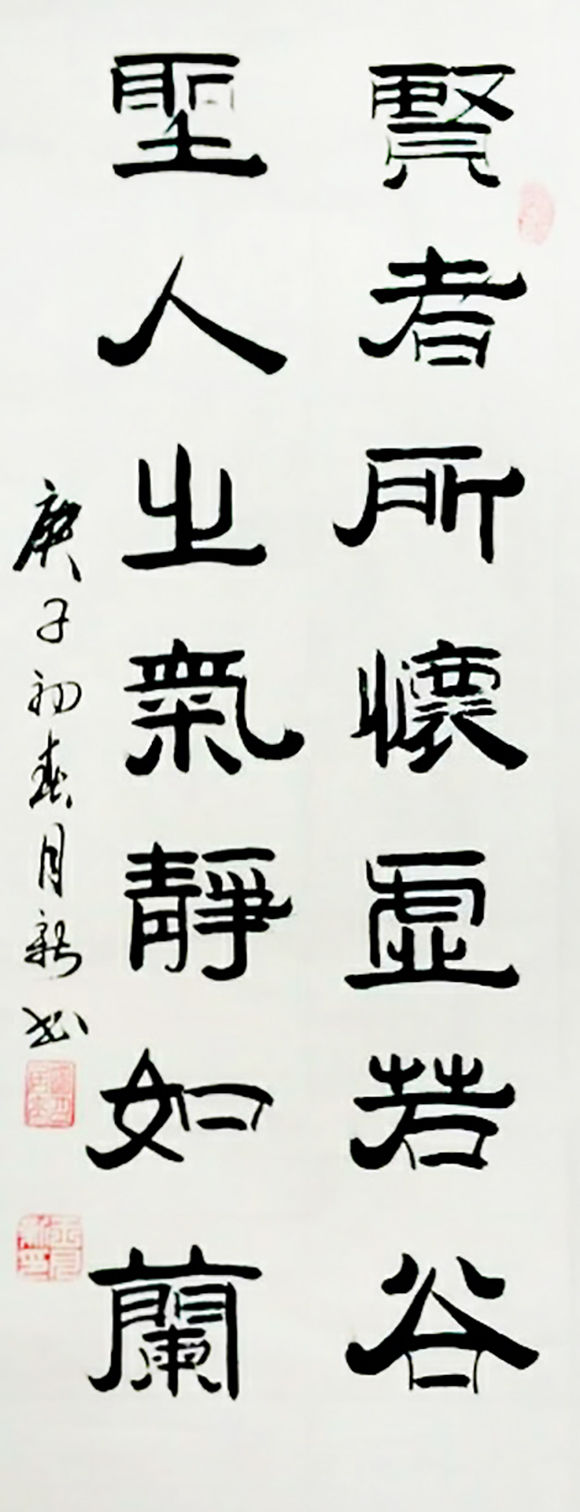 賢者所懷虛若谷
聖人之氣靜如蘭
庚子初春月新书